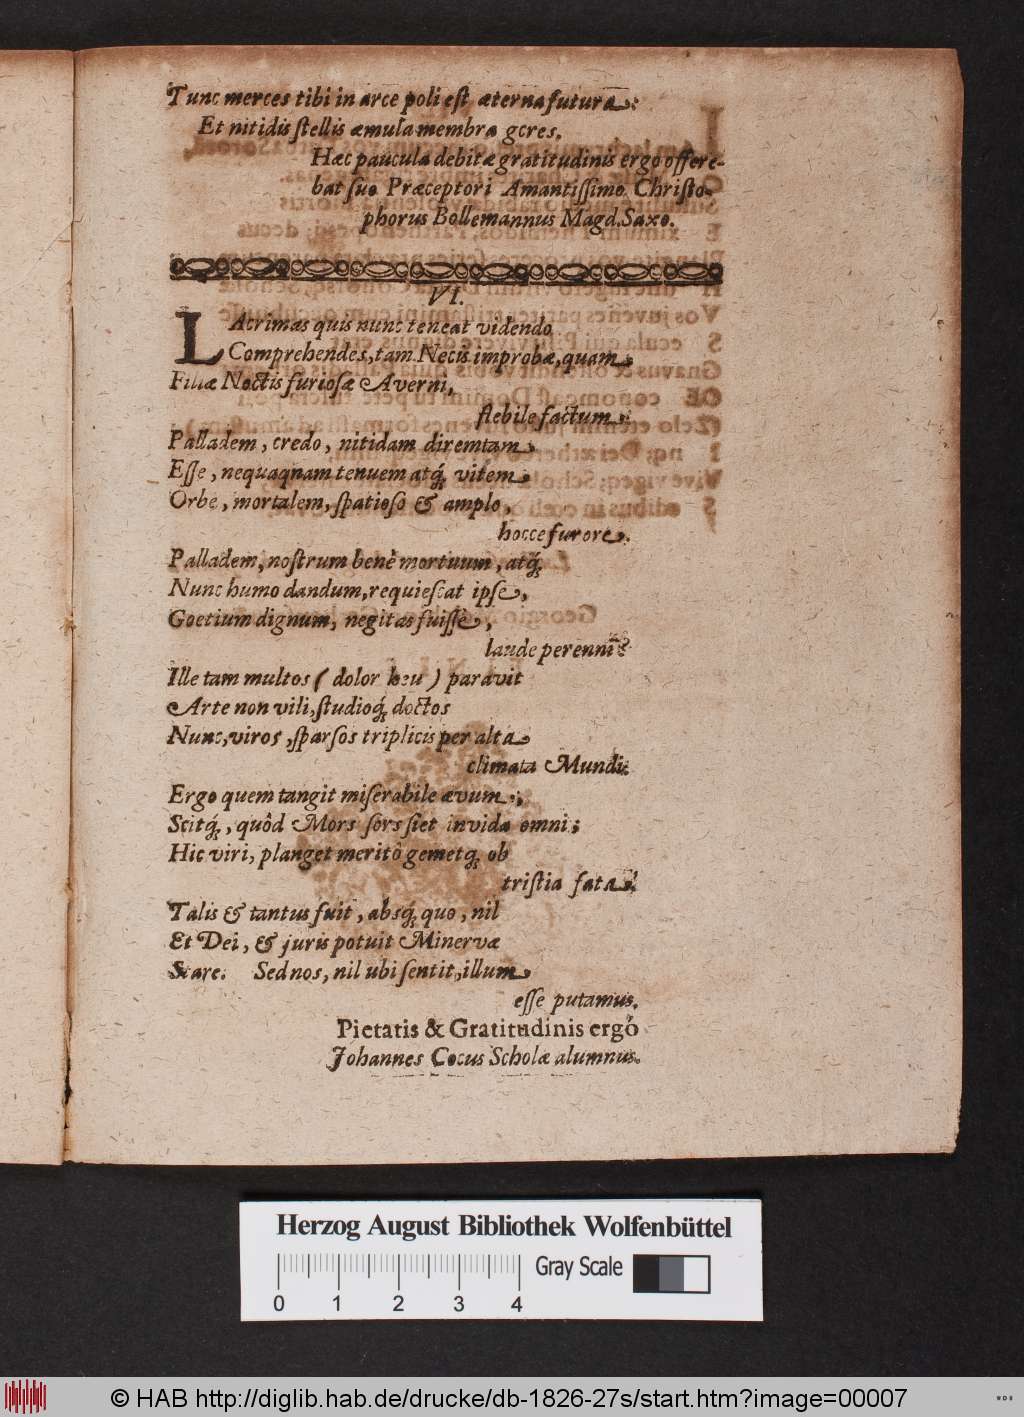 Tunc merces tibi in arce poli est æterna futura:
Et nitidis stellis æmula membra geres.
Hæc paucula debitæ gratitudinis ergo offere-
bat suo Præceptori Amantissimo Christo-
phorus Bollemannus Magd. Saxo.
VI.
LAcrimas quis nunc teneat videndo
Comprehendes, tam Necis improbæ, quam
Filiæ Noctis furiosæ Averni,
flebile factum:
Palladem, credo, nitidam diremtam
Esse, nequaqnam tenuem atq́; vitem
Orbe, mortalem, spatioso & amplo,
hocce furore.
Palladem, nostrum benè mortuum, atq́;
Nunc humo dandum, requiescat ipse,
Goetium dignum, negitas fuisse,
laude perenni?
Ille tam multos ( dolor heu ) paravit
Arte non vili, studioq́; doctos
Nunc, viros, sparsos triplicis per alta
climata Mundi:
Ergo quem tangit miserabile ævum;
Scitq́;, quôd Mors sors siet invida omni;
Hic viri, planget meritò gemetq́; ob
tristia fata!
Talis & tantus fuit, absq́; quo, nil
Et Dei, & juris potuit Minervæ
Stare. Sed nos, nil ubi sentit, illum
esse putamus.
Pietatis & Gratitudinis ergò
Johannes Cocus Scholæ alumnus.
Herzog August Bibliothek Wolfenbüttel
Gray Scale
0 1 2 3 4
© HAB http://diglib.hab.de/drucke/db-1826-27s/start.htm?image=00007